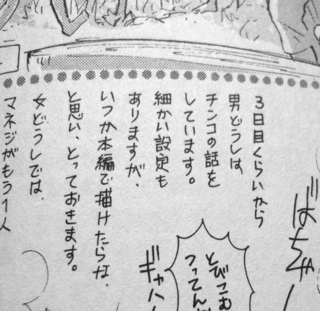 3日目くらいから
男どうしは、
チンコの話を
しています。
細かい設定も
ありますが、
いつか本編で描けたらな、
と思い、とっておきます。
女どうしでは、
マネジがもう1人
ばちゃ
とびこむ
つってん
ギャハ